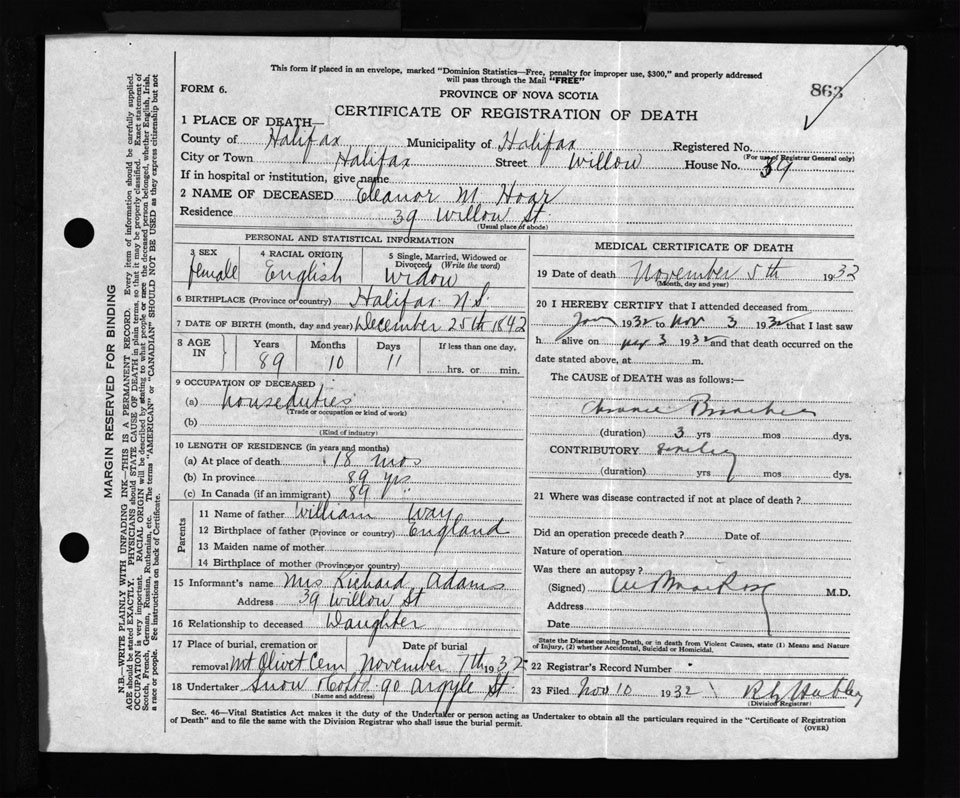 This form if placed in an envelope, marked "Dominion Statistics—Free, penalty for improper use, $300," and properly addressed
will pass through the Mail "FREE"
FORM 6.
PROVINCE OF NOVA SCOTIA
863
CERTIFICATE OF REGISTRATION OF DEATH
1 PLACE OF DEATH—
County of Halifax Municipality of Halifax Registered No.
(For use of Registrar General only)
City or Town Halifax Street Willow House No. 39
If in hospital or institution, give name
2 NAME OF DECEASED Eleanor M. Hoar
Residence 39 Willow St.
(Usual place of abode)
PERSONAL AND STATISTICAL INFORMATION
3 SEX female
4 RACIAL ORIGIN English
5 Single, Married, Widowed or Divorced (Write the word) Widow
6 BIRTHPLACE (Province or country) Halifax N.S.
7 DATE OF BIRTH (month, day and year) December 25th 1842
8 AGE IN
Years Months Days If less than one day,
89 10 11 hrs. or min.
9 OCCUPATION OF DECEASED
(a) Houseduties
(Trade or occupation or kind of work)
(b)
(Kind of industry)
10 LENGTH OF RESIDENCE (in years and months)
(a) At place of death 18 mos
(b) In province 89 yrs
(c) In Canada (if an immigrant) 89
Parents
11 Name of father William Way
12 Birthplace of father (Province or country) England
13 Maiden name of mother
14 Birthplace of mother (Province or country)
15 Informant's name Mrs Richard Adams
Address 39 Willow St
16 Relationship to deceased Daughter
17 Place of burial, cremation or Date of burial
removal Mt Olivet Cem November 7th 1932
18 Undertaker Snow & Co Ltd 90 Argyle St.
(Name and address)
MEDICAL CERTIFICATE OF DEATH
19 Date of death November 5th 1932
(Month, day and year)
20 I HEREBY CERTIFY that I attended deceased from
Jan 1932 to Nov 3 1932 that I last saw
h alive on Nov 3 1932 and that death occurred on the
date stated above, at m.
The CAUSE of DEATH was as follows:—
Chronic
(duration) 3 yrs mos dys.
CONTRIBUTORY Senility
(duration) yrs mos dys.
21 Where was disease contracted if not at place of death?
Did an operation precede death? Date of
Nature of operation
Was there an autopsy?
(Signed) M.D.
Address
Date
State the Disease causing Death, or in death from Violent Causes, state (1) Means and Nature
of Injury, (2) whether Accidental, Suicidal or Homicidal.
22 Registrar's Record Number
23 Filed Nov 10 1932
(Division Registrar)
Sec. 46—Vital Statistics Act makes it the duty of the Undertaker or person acting as Undertaker to obtain all the particulars required in the "Certificate of Registration
of Death" and to file the same with the Division Registrar who shall issue the burial permit.
(OVER)
MARGIN RESERVED FOR BINDING
N.B.—WRITE PLAINLY WITH UNFADING INK—THIS IS A PERMANENT RECORD. Every item of information should be carefully supplied.
AGE should be stated EXACTLY. PHYSICIANS should STATE CAUSE OF DEATH in plain terms, so that it may be properly classified. Exact statement of
OCCUPATION is very important. RACIAL ORIGIN will be described by stating to what people or race the deceased person belonged, whether English, Irish,
Scotch, French, German, Russian, Ruthenian, etc. The terms "AMERICAN" or "CANADIAN" SHOULD NOT BE USED as they express citizenship but not
a race or people. See instructions on back of Certificate.